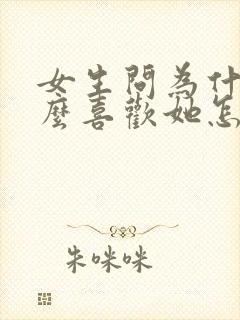 女生問為什
麼喜歡她怎
朱咪咪